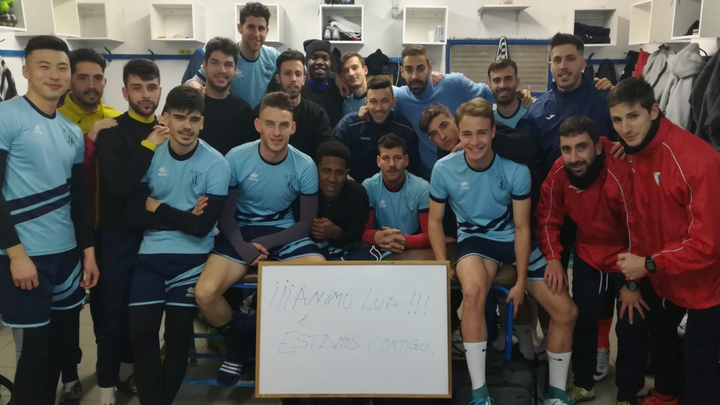 ¡¡¡ÁNIMO LUIS !!!
ESTAMOS CONTIGO.